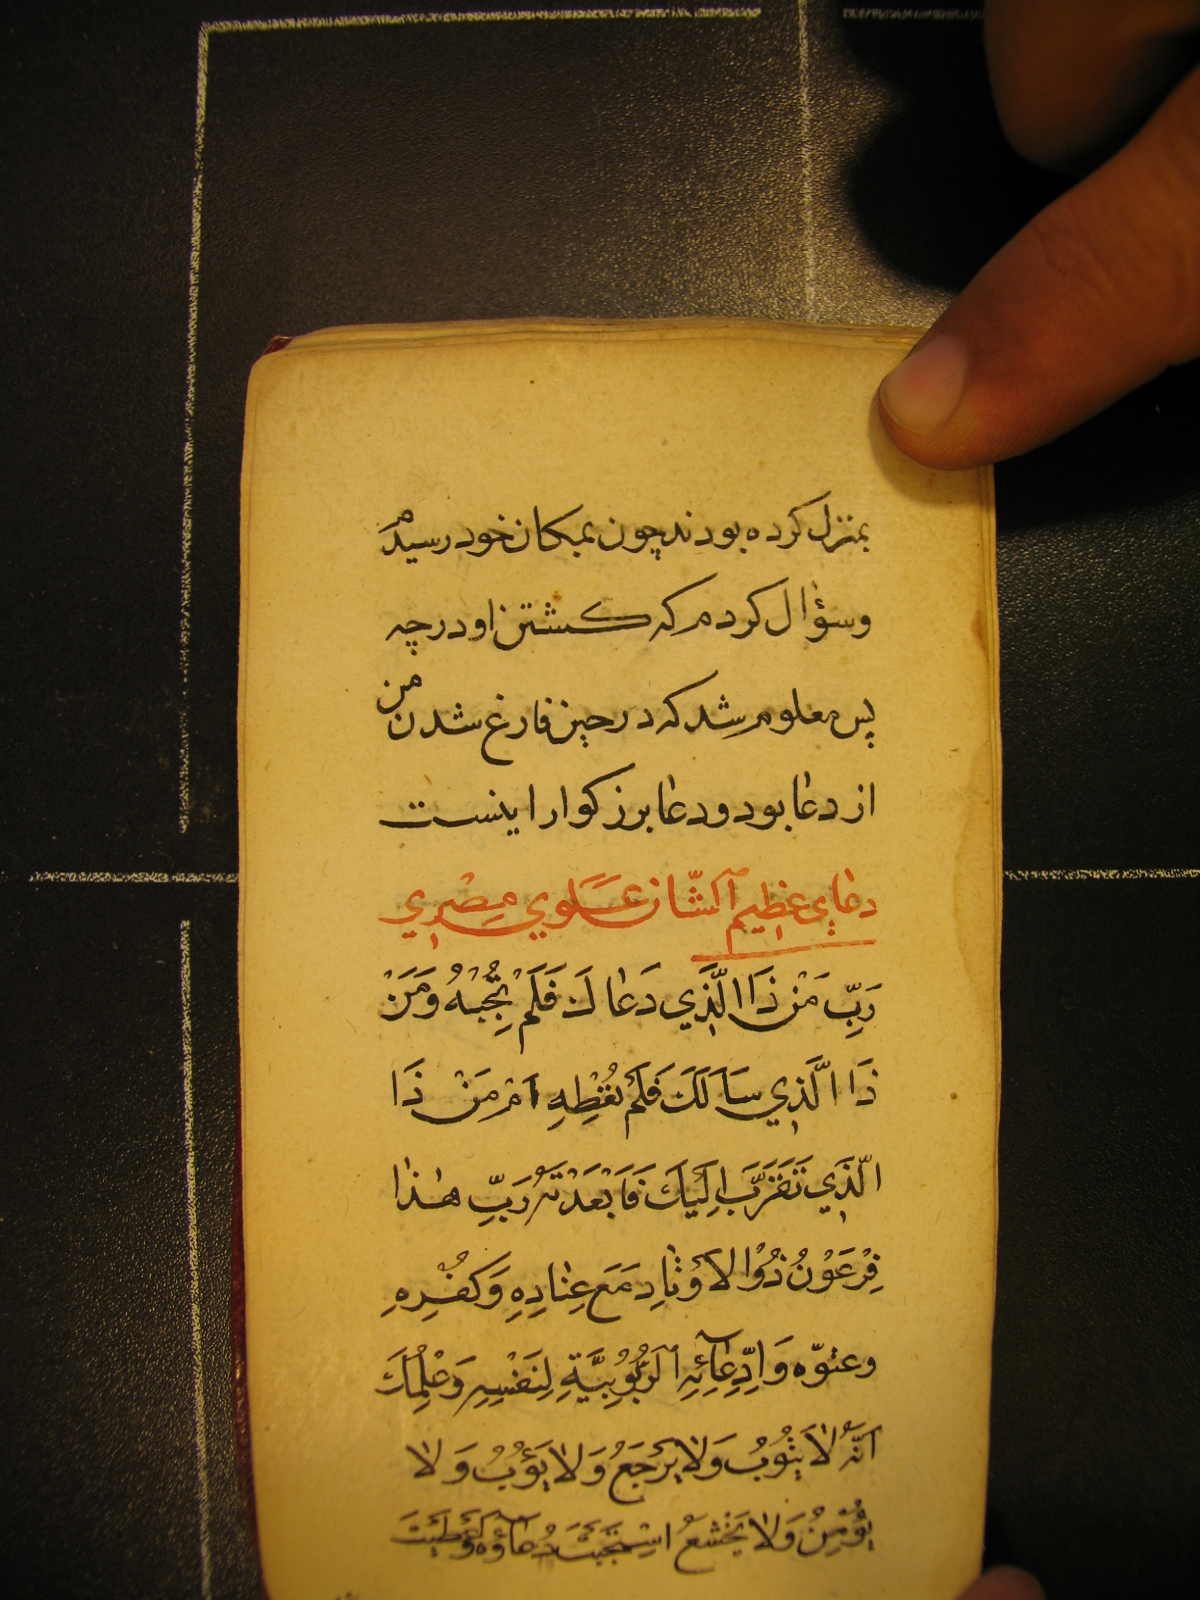 بمنزل کرده بودند چون بمکان خود رسیدم
وسؤال کردم که کشتن او در چه
پس معلوم شد که در حین فارغ شدن من
از دعا بود و دعا بزرکوار اینست
دعای عظیم الشّان علوي مصري
رَبِّ مَنْ ذَا الَّذِي دَعَاكَ فَلَمْ تُجِبْهُ وَمَنْ
ذَا الَّذِي سَاَلَكَ فَلَمْ تُعْطِهِ اَمْ مَنْ ذَا
الَّذِي تَقَرَّبَ اِلَيْكَ فَاَبْعَدْتَهُ رَبِّ هٰذا
فِرْعَوْنُ ذُوْا الاَوْتٰادِ مَعَ عِنٰادِهِ وَكُفْرِهِ
وعتوّه وَاِدِّعٰائِهِ الرُّبُوْبِيَّةِ لِنَفْسِهِ وَعِلْمِكَ
اَنَّهُ لاٰ يَتُوْبُ وَلاٰ يَرْجَعُ وَلاٰ يَؤُبُ وَلاٰ
يُؤْمِنُ وَلاٰ يَخْشَعُ اسْتَجَبْتَ دُعٰاؤَهُ